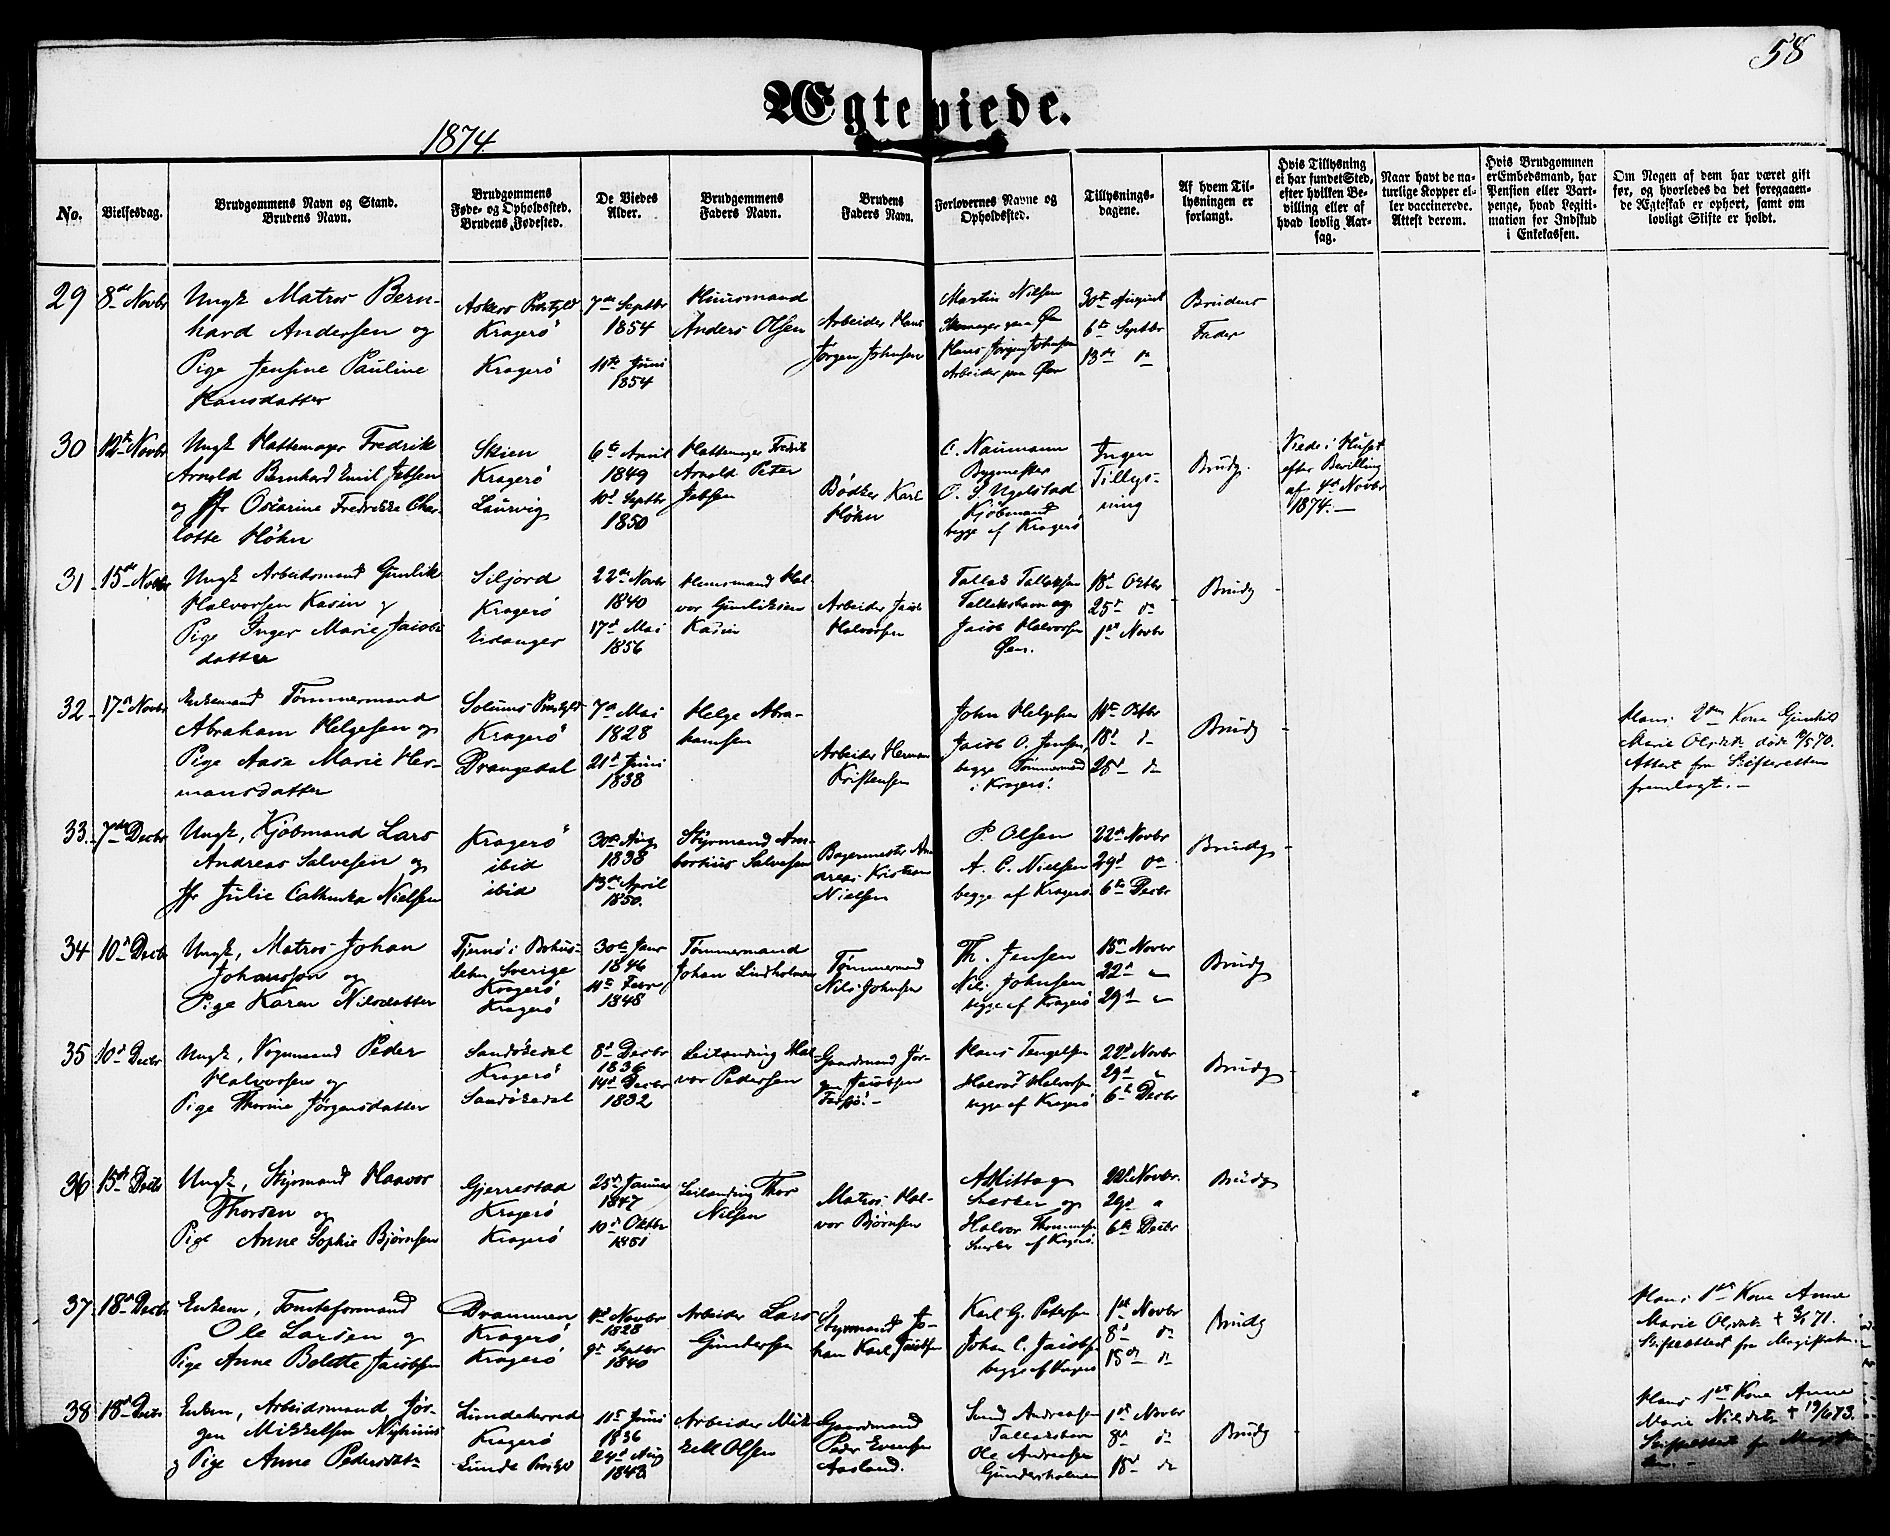 58
Ægteviede.
1874.
No.
Vielsesdag.
Brudgommens Navn og Stand.
Brudens Navn.
Brudgommens
Føde- og Opholdssted.
Brudens Fødested.
De Viedes
Alder.
Brudgommens
Faders Navn.
Brudens
Faders Navn.
Forlovernes Navne og
Opholdssted.
Tillysnings-
dagene.
Af hvem Til-
lysningen er
forlangt.
Hvis Tillysning
ei har fundet Sted,
efter hvilken Be-
villing eller af
hvad lovlig Aar-
sag.
Naar havt de na-
turlige Kopper el-
ler vaccinerede.
Attest derom.
Hvis Brudgommen
er Embedsmand, har
Pension eller Vart-
penge, hvad Legiti-
mation for Indskud
i Enkekassen.
Om Nogen af dem har været gift
før, og hvorledes da det foregaaen-
de Ægteskab er ophørt, samt om
lovligt Skifte er holdt.
29
8de Novbr
Ungk Matros Bern-
hard Andersen og
Pige Jensine Pauline
Hansdatter
Askers Prstgld
Kragerö
Kragerö
7de Septbr
1854
11te Juni
1854
Huusmand
Anders Olsen
Arbeider Hans
Jørgen Johnsen
Martin Nilsen
paa Øen
Hans Jørgen Johnsen
Arbeider paa Øen
30te August
6te Septbr
13de do
Brudens
Fader
30
12te Novbr
Ungk Hattemager Fredrik
Arnold Bernhard Emil Jebsen
og Jfr Oscarine Fredrikke Char-
lotte Höhn
Skien
Kragerö
Laurvig
6te April
1849
10d Septbr
1850
Hattemager Fredrik
Arnold Peter
Jebsen
Bødker Karl
Höhn
C. Naumann
Bygmester
O. S. Ugelstad
Kjøbmand
begge af Kragerö
Ingen
Tillys-
ning
Brudg.
Viede i Huset
efter Bevilling
af 4de Novbr
1874.
31
15de Novbr
Ungk Arbeidsmand Gunlik
Halvorsen Kasin og
Pige Inger Marie Jacobs
datter
Siljord
Kragerö
Eidanger
22de Novbr
1840
17d Mai
1856
Huusmand Hal-
vor Gunliksen
Kasin
Arbeider Jacob
Halvorsen
Tallak Tallaksen
Tallakshavn og
Jacob Halvorsen
Øen.
18d Octbr
25d do
1ste Novbr
Brudg
32
17de Novbr
Enkemand Tömmermand
Abraham Helgesen og
Pige Aase Marie Her-
mansdatter
Solums Prstgld
Kragerö
Drangedal
7de Mai
1828
21d Juni
1838
Helge Abra-
hamsen
Arbeider Herman
Kristensen
John Helgesen
Jacob O. Jensen,
begge Tømmermænd
i Kragerö.
11te Octbr
18d do
25d do
Brudg
Hans 2den Kone Gunhild
Marie Olsdtr døde /5 70.
Attest fra Skifteretten
fremlagt.
33
7de Decbr
Ungk, Kjöbmand Lars
Andreas Salvesen og
Jfr Julie Cathinka Nielsen
Kragerö
ibid
ibid
30te Aug
1838
13de April
1850.
Styrmand Am-
brosius Salvesen
Bagermester An-
dreas Kristian
Nielsen
P. Olsen
A. C. Nielsen
begge af Kragerö
22de Novbr
29d do
6te Decbr
Brudg
34
10d Decbr
Ungk, Matros Johan
Johansson og
Pige Karen Nilsdatter
Tjernö i Bohus-
lehn, Sverige
Kragerö
Kragerö
30te Janr
1846
11te Febr
1848
Tömmermand
Johan Lindholmen
Tømmermand
Nils Johnsen
Th. Jensen
Nils Johnsen
begge af Kragerö
15de Novbr
22d "
29d "
Brudg
35
10d Decbr
Ungk, Vognmand Peder
Halvorsen og
Pige Thorine Jørgensdatter
Sandökedal
Kragerö
Sandökedal
8d Decbr
1836
14d Decbr
1832
Leilending Hal-
vor Pedersen
Gaardmand Jør-
gen Jacobsen
Hans Tengelsen
Halvor Halvorsen
begge af Kragerö
22d Novbr
29d "
6te Decbr
Brudg
36
15d Decbr
Ungk, Styrmand Haavor
Thorsen og
Pige Anne Sophie Björnsen
Gjerrestad
Kragerö
Kragerö
25d Januar
1847
10d Oktbr
1851
Leilending Thor
Nilsen
Matros Hal-
vor Bjørnsen
og
Halvor Thommesen
af Kragerö.
22d Novbr.
29d "
6te Decbr
Brudg
37
18d Decbr
Enkem, Tomteformand
Ole Larsen og
Pige Anne Bolette Jacobsen
Drammen
Kragerö
Kragerö
1ste Novbr
1828
9d Septbr
1840
Arbeider Lars
Gundersen
Styrmand Jo-
han Karl Jacobsen
Karl G. Petersen
Johan C. Jacobsen
begge af Kragerö
1ste Novbr
8d do
15de do
Brudg
Hans 1ste Kone Anne
Marie Olsdtr † 3/1 71.
Skifteattest fra Magistraten.
38
18d Decbr
Enkem, Arbeidsmand Jør-
gen Mikkelsen Nyhuus
og Pige Anne Pedersdtr
Lundeherred
Kragerö
Lunde Prstgld
11te Juni
1836
24d Aug
1848
Arbeider Mik-
kell Olsen
Gaardmand
Peder Evensen
Aasland.
Lund Andreassen
Tallakshavn
Ole Andreassen
Gundersholmen
1ste Novbr
8d do
15d do
Brudg
Hans 1ste Kone Anne
Marie Nilsdtr † 19/6 73.
Skifteattest fra